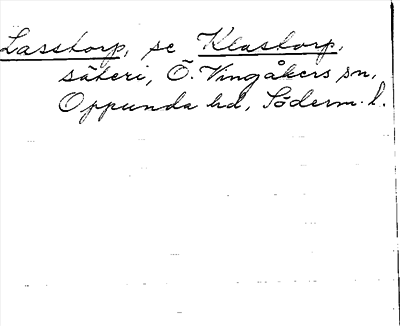 Lasstorp, se Klastorp,
säteri, Ö. Vingåkers sn,
Oppunda hd, Söderm. l.